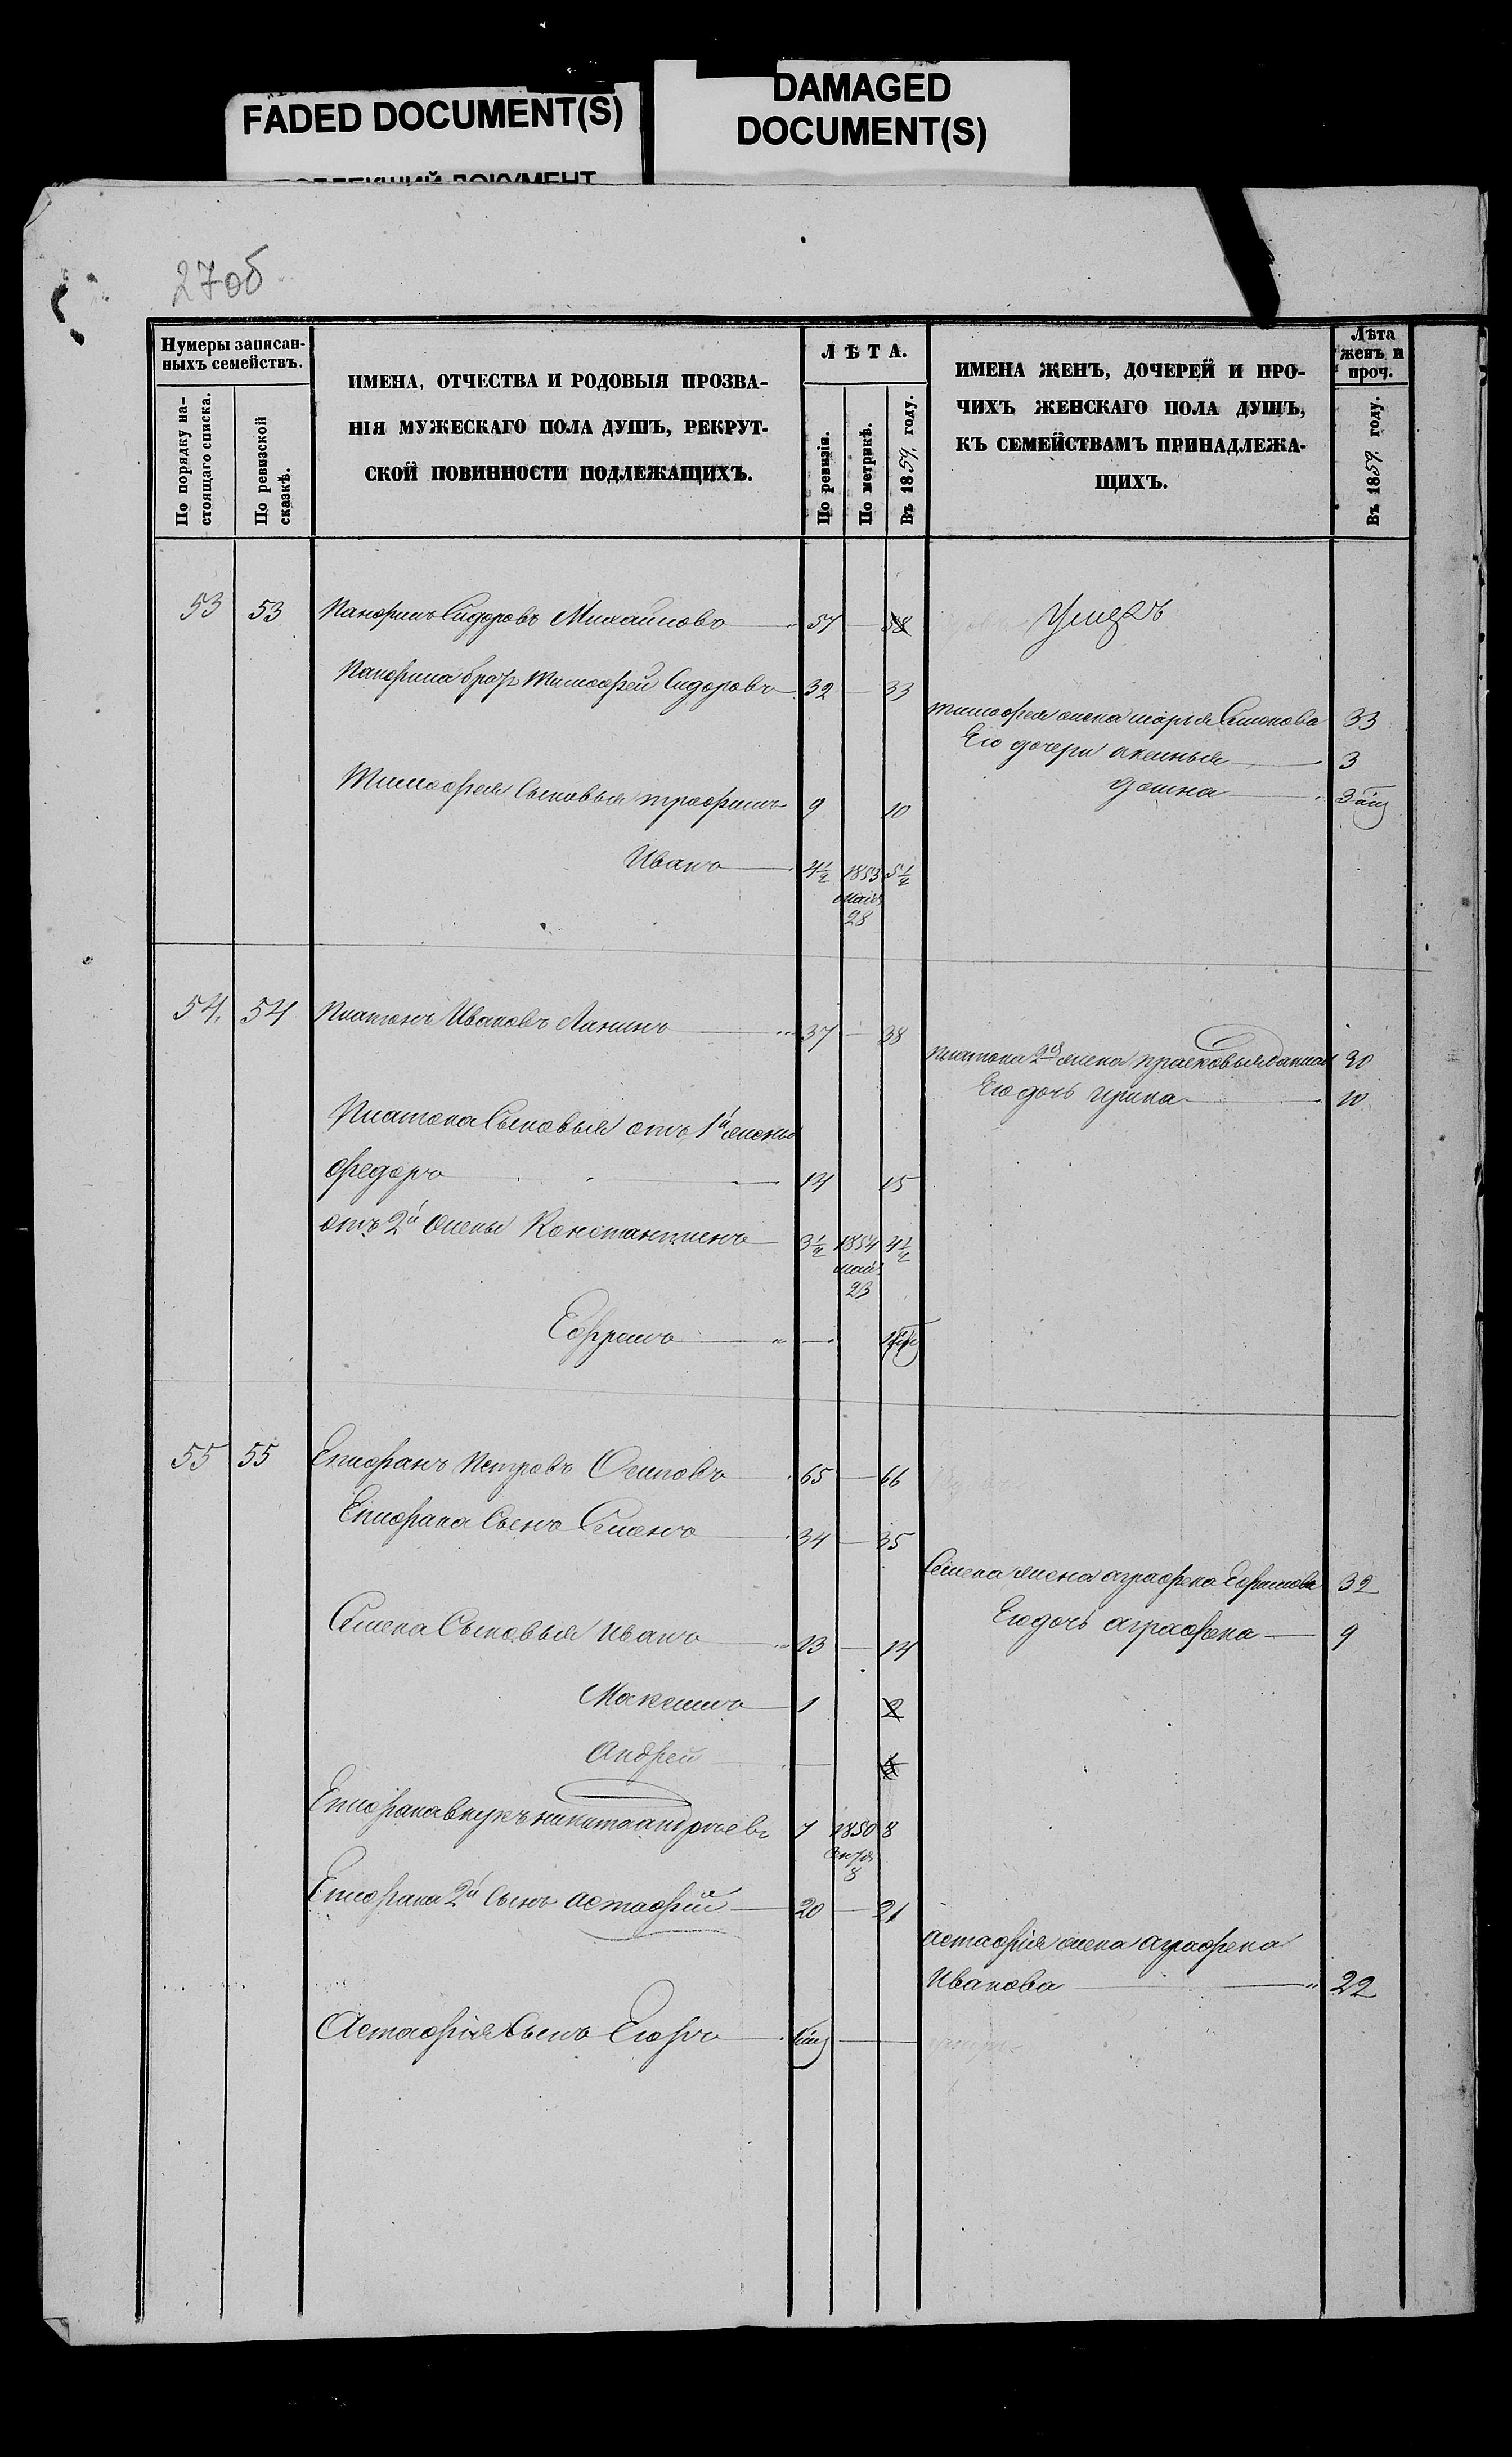 FADED DOCUMENT(S)
DAMAGED
DOCUMENT(S)
27об
Нумеры записан-
ныхъ семействъ.
По порядку на-
стоящаго списка.
По ревизской
сказкѣ.
ИМЕНА, ОТЧЕСТВА И РОДОВЫЯ ПРОЗВА-
НІЯ МУЖЕСКАГО ПОЛА ДУШЪ, РЕКРУТ-
СКОЙ ПОВИННОСТИ ПОДЛЕЖАЩИХЪ.
ЛѢТА.
По ревизіи.
По метрикѣ.
Въ 1859 году.
ИМЕНА ЖЕНЪ, ДОЧЕРЕЙ И ПРО-
ЧИХЪ ЖЕНСКАГО ПОЛА ДУШЪ,
КЪ СЕМЕЙСТВАМЪ ПРИНАДЛЕЖА-
ЩИХЪ.
Лѣта
женъ и
проч.
Въ 1859 году.
53 53 Панфилъ Сидоровъ Михайловъ 57 58
Панфила братъ Тимофей Сидоровъ 32 33
Тимофея жена марья Семенова 33
Его дочери аксинья 3
домна 3
Тимофея Сыновья трофимъ 9 10
Иванъ 4½ 1853 5½
маія
28
54. 54 Платонъ Ивановъ Ланинъ 37 38
Платона 2я жена прасковья 30
Его дочь ирина 10
Платона Сыновья отъ 1й жены
Федоръ 14 15
отъ 2й жены Константинъ 3½ 1854 4½
маія
23
Ефремъ
55 55 Епифанъ Петровъ Осиповъ 65 66
Епифана Сынъ Семенъ 34 35
Семена жена аграфена Ефимова 32
Его дочь аграфена 9
Семена Сыновья Иванъ 13 14
Максимъ 1 2
Андрей
Епифана внукъ никита андреевъ 7 1850 8
8
Епифана 2й Сынъ астафій 20 21
астафія жена аграфена
Иванова 22
Астафія Сынъ Егоръ